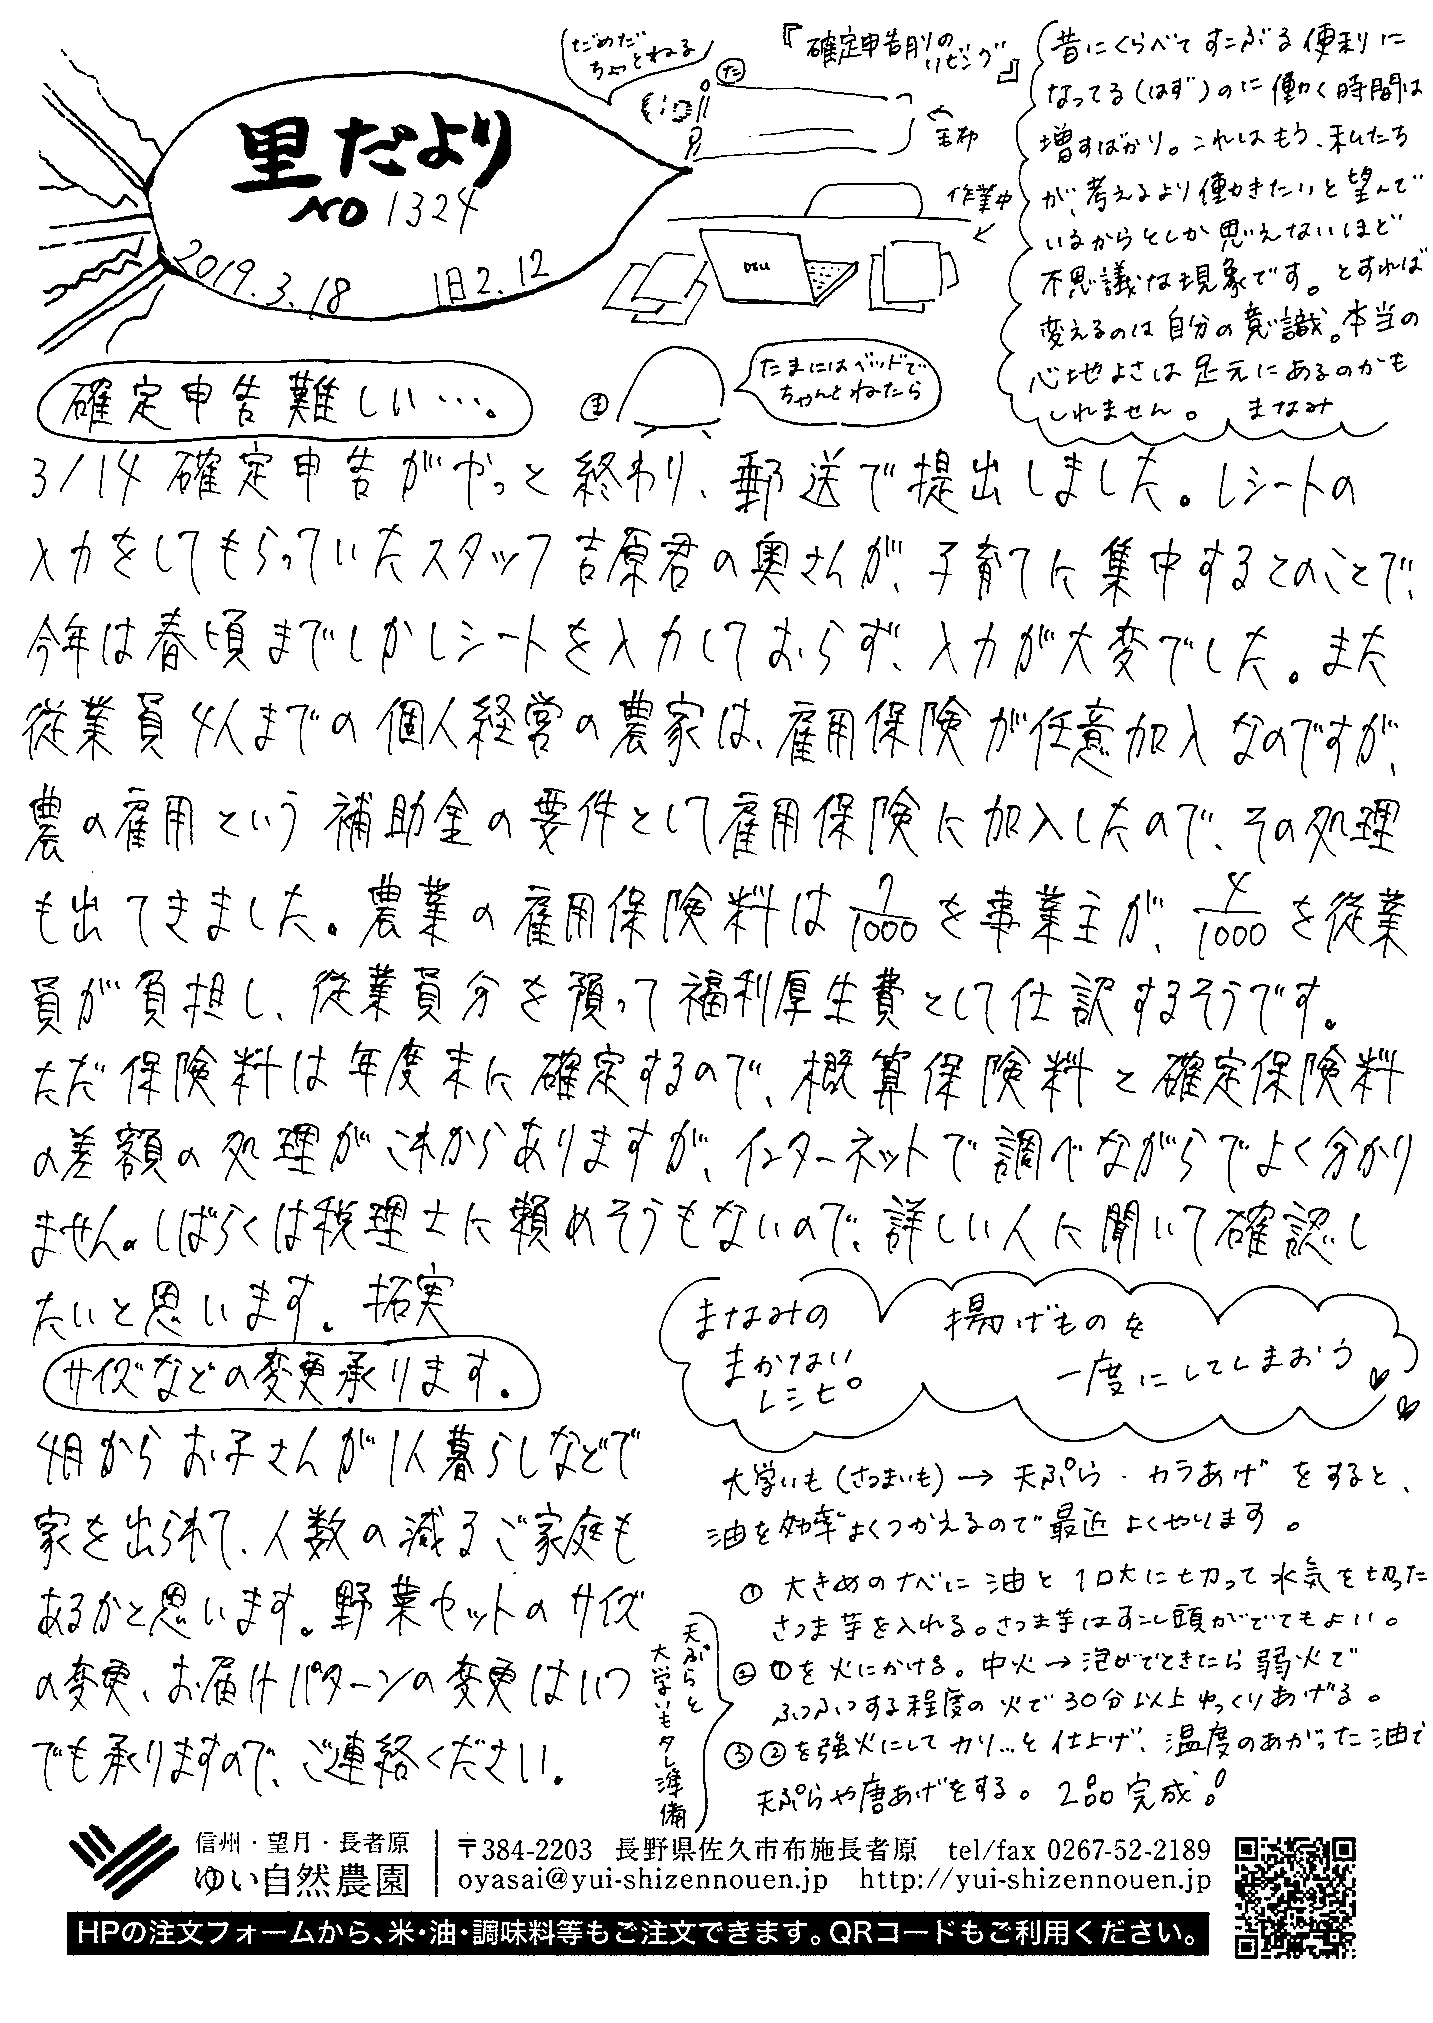 里だより
NO 1324
2019.3.18 旧2.12
だめだ
ちょっとねる
た
『確定申告前の
リビング』
毛布
作業中
DELL
ま
たまにはベッドで
ちゃんとねたら
昔にくらべてすこぶる便利に
なってる(はず)のに働く時間は
増すばかり。これはもう、私たち
が、考えるより働きたいと望んで
いるからとしか思えないほど
不思議な現象です。とすれば
変えるのは自分の意識。本当の
心地よさは足元にあるのかも
しれません。 まなみ
確定申告難しい…。
3/14 確定申告がやっと終わり、郵送で提出しました。レシートの
入力をしてもらっていたスタッフ吉原君の奥さんが、子育てに集中するとのことで、
今年は春頃までしかレシートを入力しておらず、入力が大変でした。また
従業員4人までの個人経営の農家は、雇用保険が任意加入なのですが、
農の雇用という補助金の要件として雇用保険に加入したので、その処理
も出てきました。農業の雇用保険料は7/1000を事業主が、4/1000を従業
員が負担し、従業員分を預って福利厚生費として仕訳するそうです。
ただ保険料は年度末に確定するので、概算保険料と確定保険料
の差額の処理がこれからありますが、インターネットで調べながらでよく分かり
ません。しばらくは税理士に頼めそうもないので、詳しい人に聞いて確認し
たいと思います。 拓実
サイズなどの変更承ります。
4月からお子さんが1人暮らしなどで
家を出られて、人数の減るご家庭も
あるかと思います。野菜セットのサイズ
の変更、お届けパターンの変更はいつ
でも承りますので、ご連絡ください。
まなみの
まかない
レシピ
揚げものを
一度にしてしまおう
大学いも(さつまいも)→天ぷら・カラあげをすると、
油を効率よくつかえるので最近よくやります。
① 大きめのナベに油と1口大に切って水気を切った
さつま芋を入れる。さつま芋はすこし頭がでてもよい。
② ①を火にかける。中火→泡がでてきたら弱火で
ふつふつする程度の火で30分以上ゆっくりあげる。
③ ②を強火にしてカリ…と仕上げ、温度のあがった油で
天ぷらや唐あげをする。2品完成!
天ぷらと
大学いもタレ準備
信州・望月・長者原
ゆい自然農園
〒384-2203 長野県佐久市布施長者原 tel/fax 0267-52-2189
oyasai@yui-shizennouen.jp http://yui-shizennouen.jp
HPの注文フォームから、米・油・調味料等もご注文できます。QRコードもご利用ください。